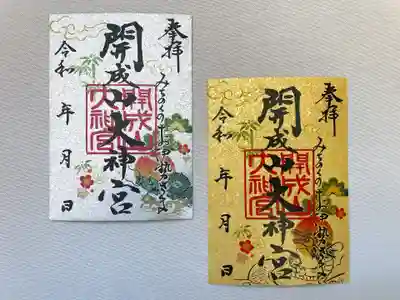 奉拝
みちのくのお伊勢さま
開成山大神宮
開成山大神宮
令和 年 月 日
奉拝
みちのくのお伊勢さま
開成山大神宮
開成山大神宮
令和 年 月 日